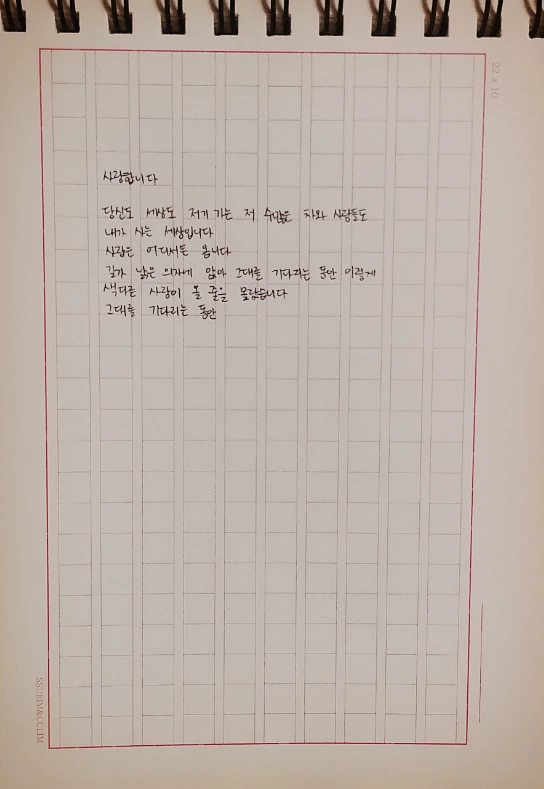 22 × 10
사랑합니다
당신도 세상도 저기 가는 저 수많은 차와 사람들도
내가 사는 세상입니다
사랑은 어디서든 옵니다
길가 낡은 의자에 앉아 그대를 기다리는 동안 이렇게
색다른 사랑이 올 줄을 몰랐습니다
그대를 기다리는 동안